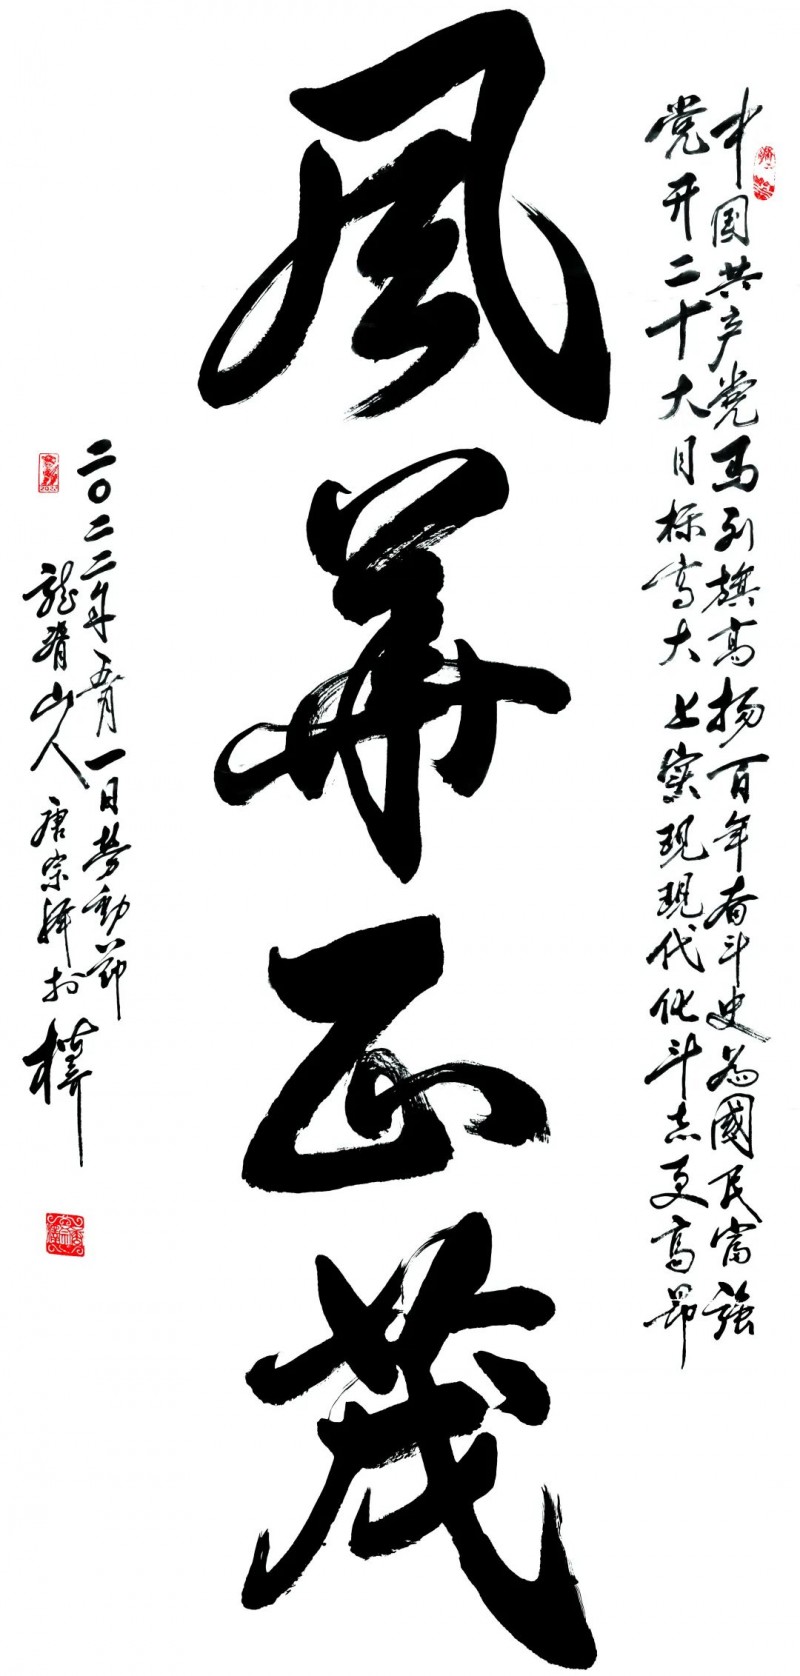 中国共产党马列旗高扬百年奋斗史為國民富強
党开二十大目标高大上实现现代化斗志更高昂
風華正茂
二〇二二年五月一日勞動節
龍脊山人唐宗